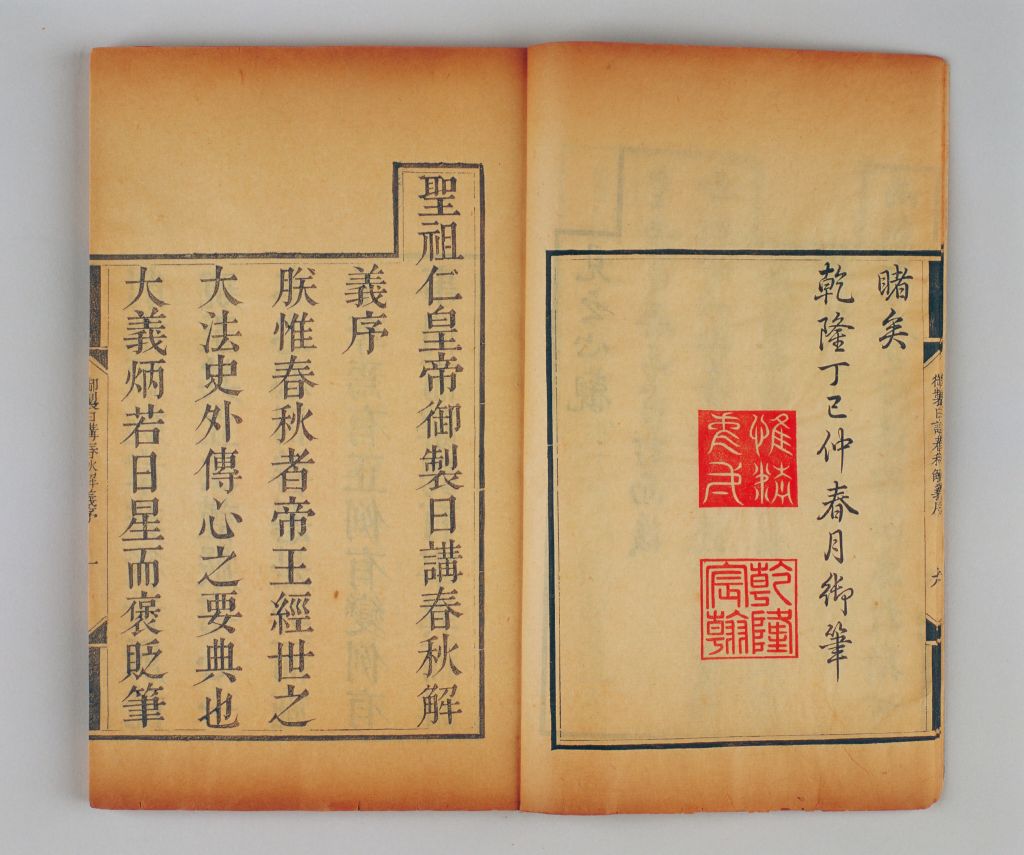 睹矣
乾隆丁巳仲春月御筆
惟精惟一
乾隆宸翰
御製日講春秋解義序
六
聖祖仁皇帝御製日講春秋解
義序
朕惟春秋者帝王經世之
大法史外傳心之要典也
大義炳若日星而褒貶筆
御製日講春秋解義序
一